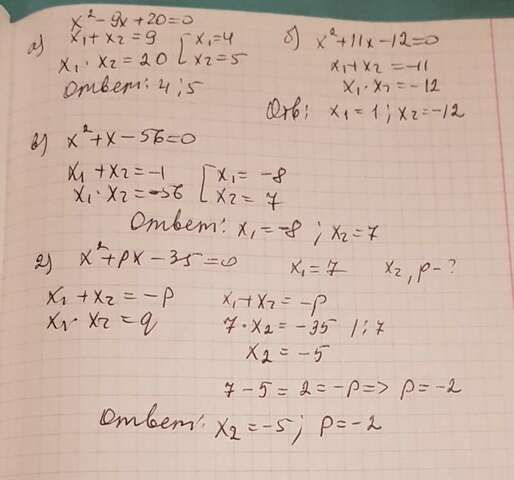 x² - 9x + 20 = 0
а) x₁ + x₂ = 9 [ x₁ = 4
x₁ · x₂ = 20 [ x₂ = 5
Ответ: 4 ; 5
б) x² + 11x - 12 = 0
x₁ + x₂ = -11
x₁ · x₂ = -12
Отв: x₁ = 1 ; x₂ = -12
в) x² + x - 56 = 0
x₁ + x₂ = -1 [ x₁ = -8
x₁ · x₂ = -56 [ x₂ = 7
Ответ: x₁ = -8 ; x₂ = 7
2) x² + px - 35 = 0 x₁ = 7 x₂, p - ?
x₁ + x₂ = -p
x₁ · x₂ = q
x₁ + x₂ = -p
7 · x₂ = -35 / : 7
x₂ = -5
7 - 5 = 2 = -p => p = -2
Ответ: x₂ = -5 ; p = -2